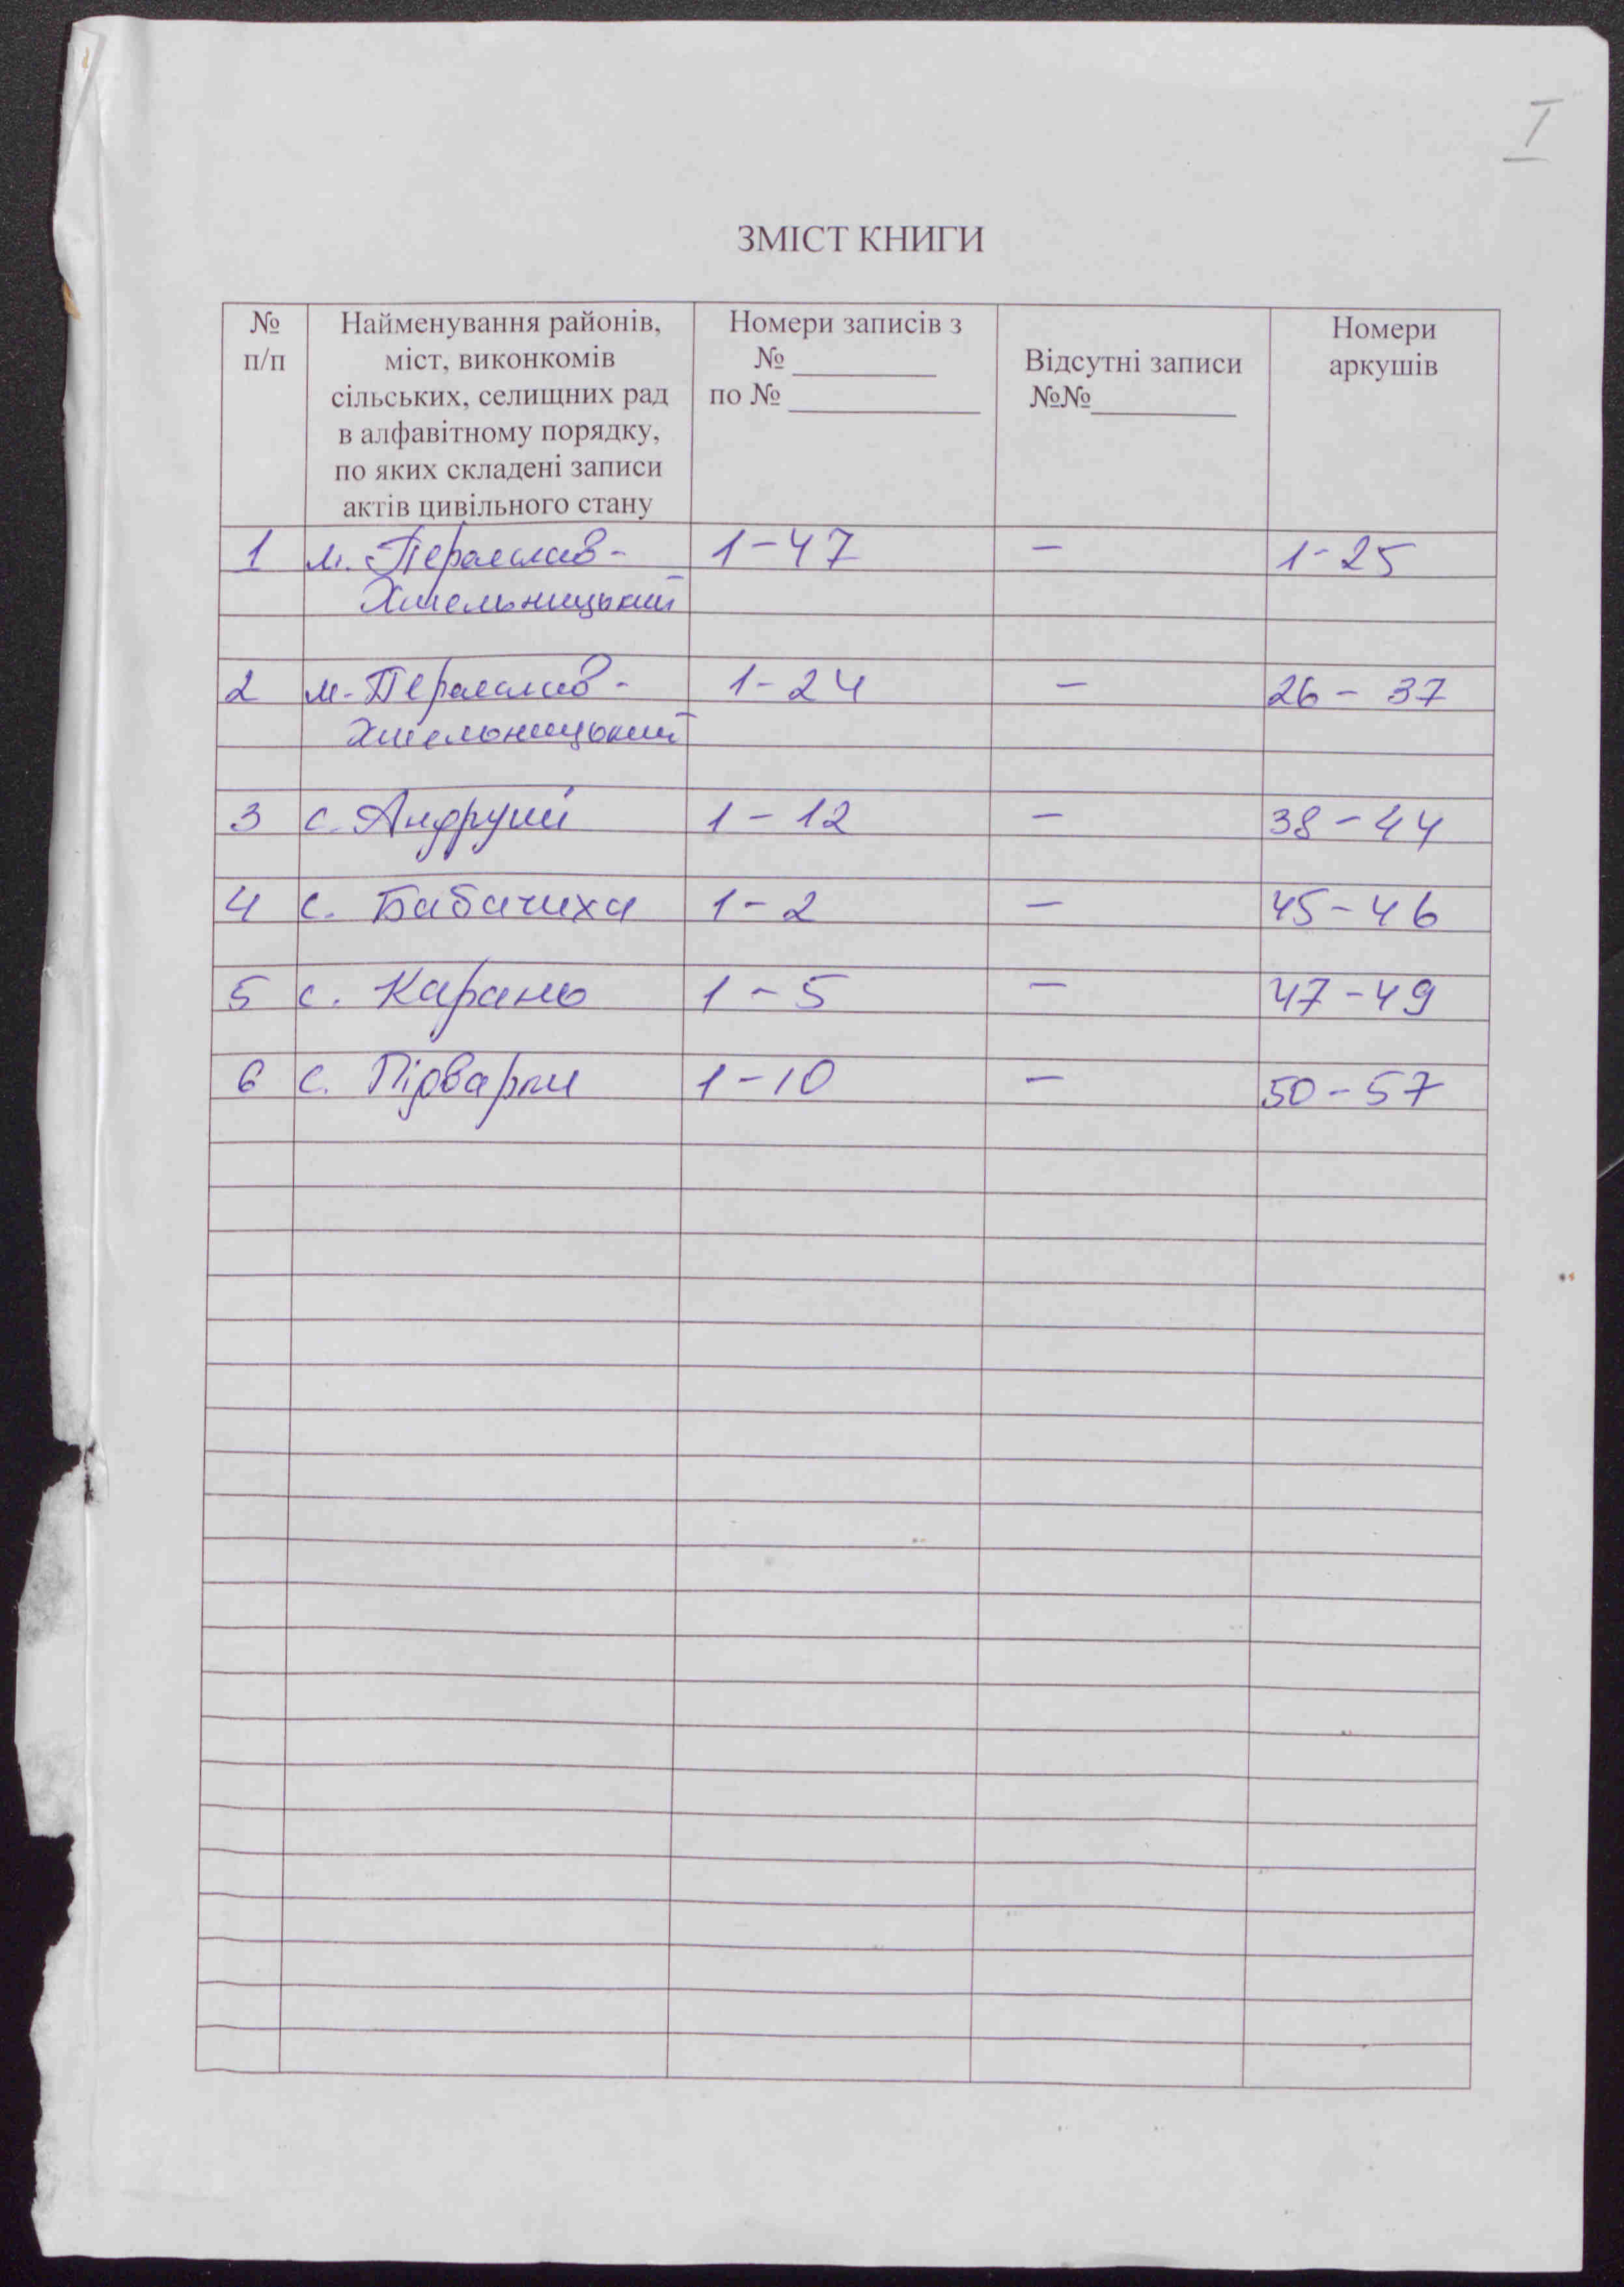 I
ЗМІСТ КНИГИ
№ п/п
Найменування районів,
міст, виконкомів
сільських, селищних рад
в алфавітному порядку,
по яких складені записи
актів цивільного стану
Номери записів з
№ __________
по № _____________
Відсутні записи
№№__________
Номери
аркушів
1 м. Переяслав- 1-47 — 1-25
Хмельницький
2 м. Переяслав- 1-24 — 26-37
Хмельницький
3 с. Андруші 1-12 — 38-44
4 с. Бабачиха 1-2 — 45-46
5 с. Карань 1-5 — 47-49
6 с. Підварки 1-10 — 50-57